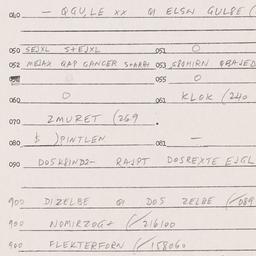 040 — QGULE XX GI ELSN GULBE (
050 SEJXL S+EJXL 051 O
052 MEJAX QAP CANCER 053
055 O
060 O 061 KLOK (240
070 ZMURET (269
080 $ )PINTLEN 081 —
090 DOSK8IND2- RAJPT DOSREXTE EJGL
900 DIZELBE GI DOS ZELBE (/089
900 NOMIRZOG+ (/216100
900 FLEKTERFORN (/158060